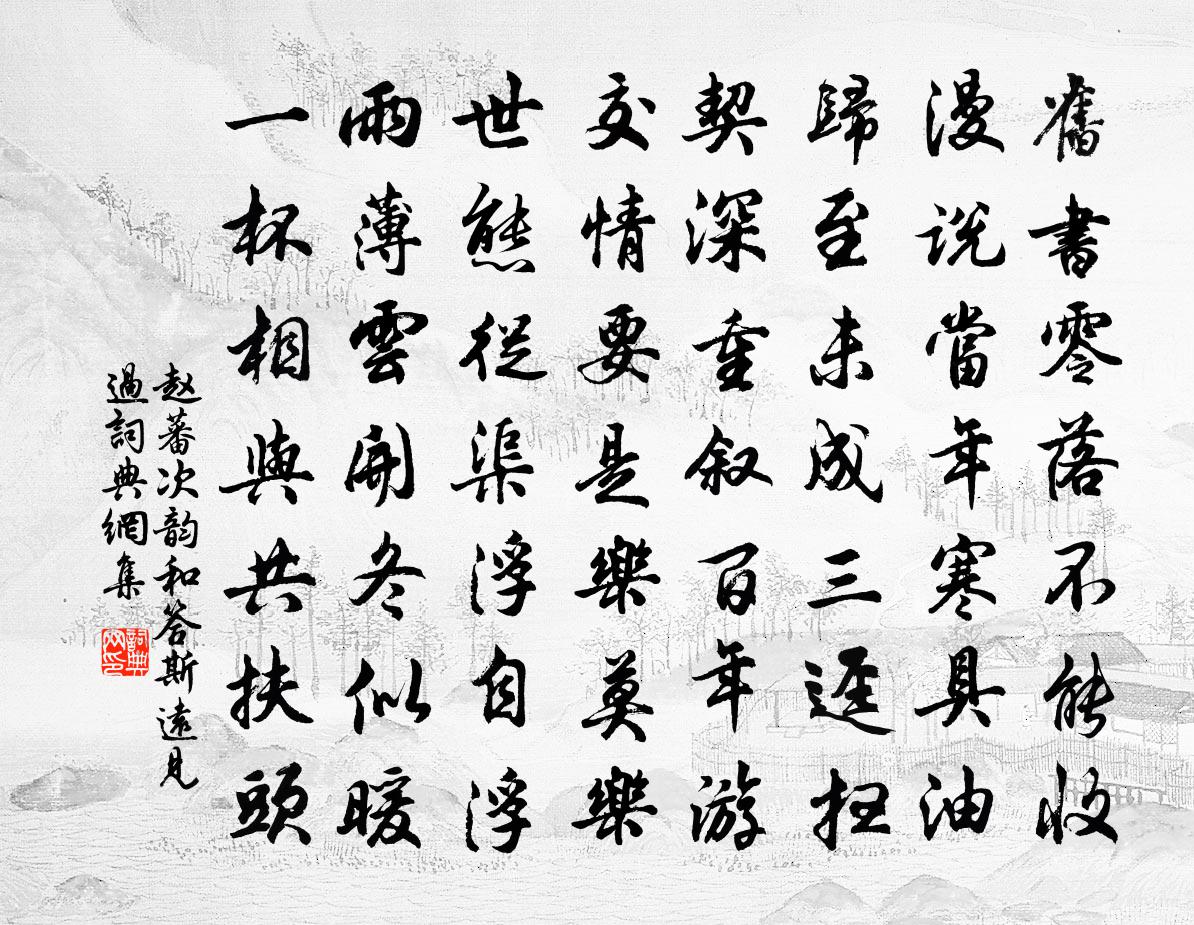 舊書零落不能收
漫說當年寒具油
歸至未成三逕
契深重叙百年游
交情要是樂莫樂
世態從渠浮自浮
雨薄雲開冬似暖
一杯相與共扶頭
赵蕃次韵和答斯遠見
過詞典網集
詞典网印